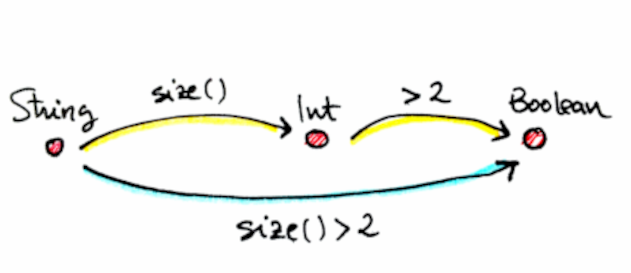 String
size()
Int
>2
Boolean
size()>2